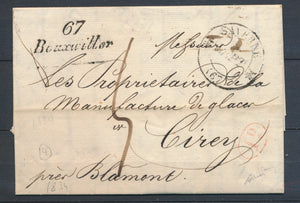 67
Bouxwiller
Messieurs
SAVERNE
(67)
Les Propriétaires de la
Manufacture de glaces
Cirey
près Blamont.
1834